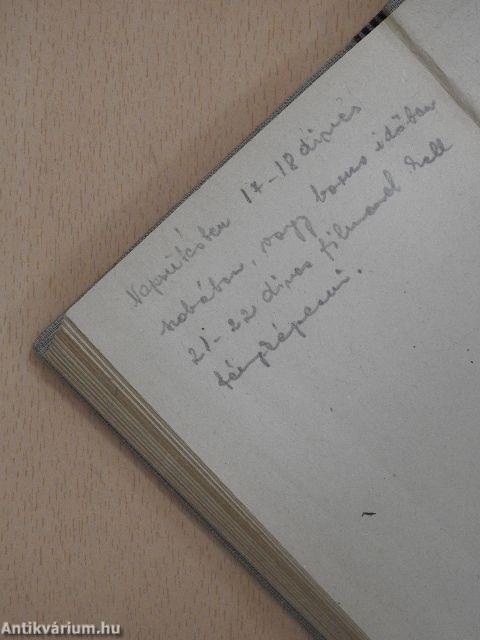 Napsütésben 17-18 dines
szobában, vagy borus időben
21-22 dines filmmel kell
fényképezni.
Antikvárium.hu